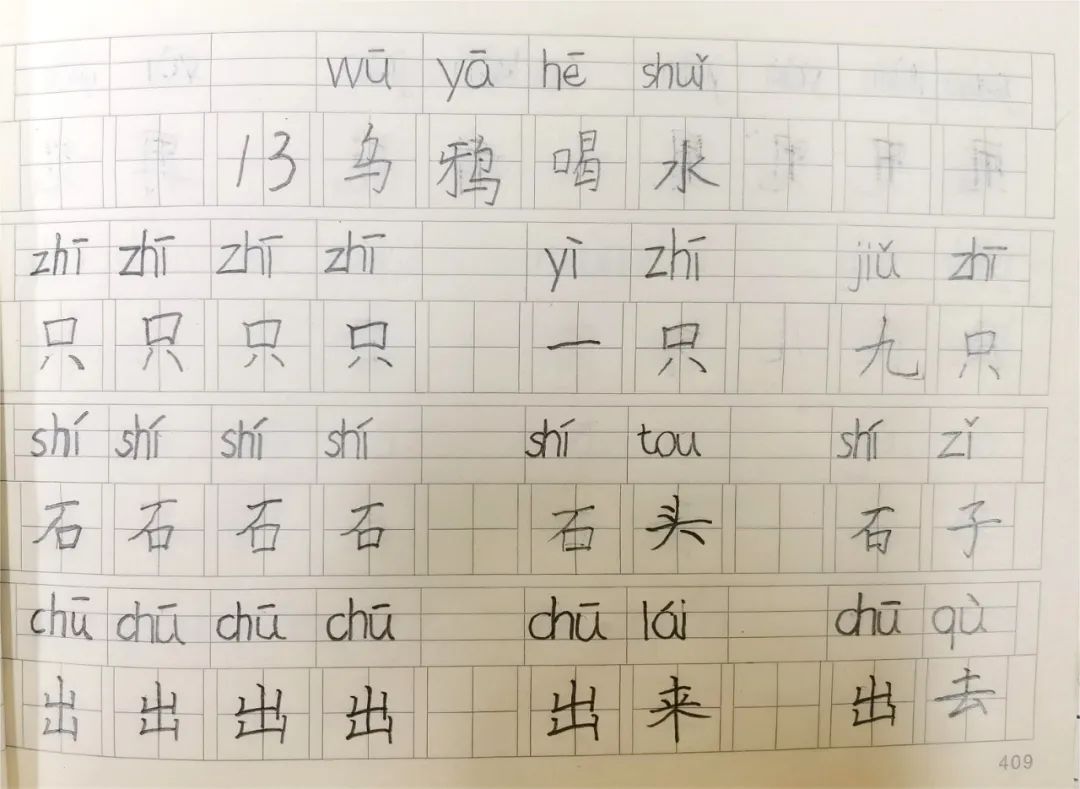 wū yā hē shuǐ
13 乌鸦喝水
zhī zhī zhī zhī yì zhī jiǔ zhī
只 只 只 只 一只 九只
shí shí shí shí shí tou shí zǐ
石 石 石 石 石头 石子
chū chū chū chū chū lái chū qù
出 出 出 出 出来 出去
409